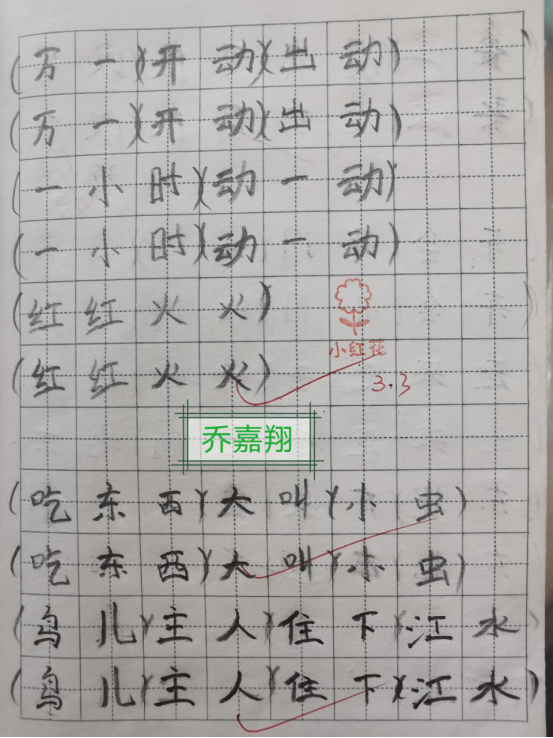 (万一)(开动)(出动)
(万一)(开动)(出动)
(一小时)(动一动)
(一小时)(动一动)
(红红火火)
(红红火火)
小红花
3.3
乔嘉翔
(吃东西)(大叫)(小虫)
(吃东西)(大叫)(小虫)
(鸟儿)(主人)(住下)(江水)
(鸟儿)(主人)(住下)(江水)